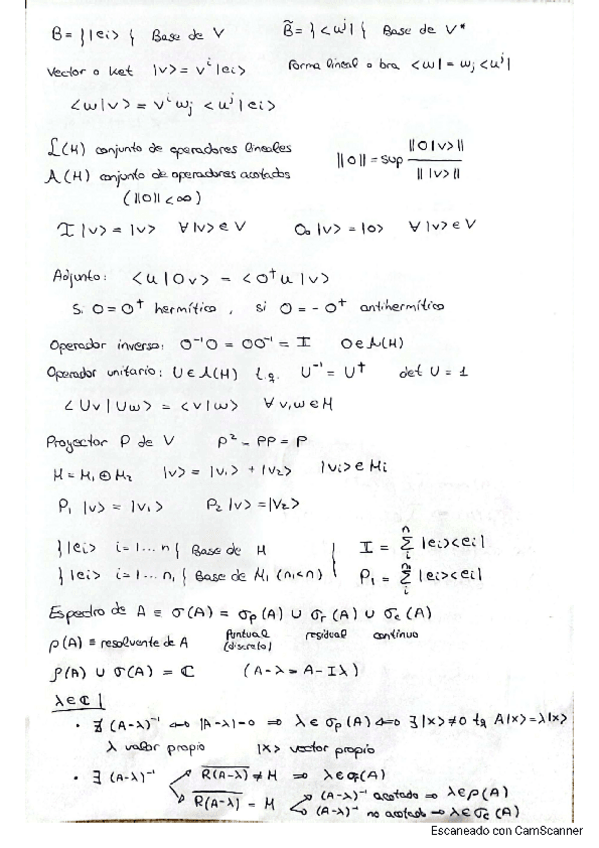 B = }|ei> { Base de V    B̃ = }<uʲ| { Base de V*
Vector o ket |v> = vⁱ|ei>    Forma lineal o bra <w| = wⱼ<uʲ|
<w|v> = vⁱ wⱼ <uʲ|ei>
L(H) conjunto de operadores lineales    ||O|| = sup ||O|v>|| / || |v>||
A(H) conjunto de operadores acotados
(||O|| < ∞)
I|v> = |v>  ∀|v> ∈ V    O₀|v> = |0>  ∀|v> ∈ V
Adjunto: <u|Ov> = <O†u|v>
Si O = O† hermítico, si O = -O† antihermítico
Operador inverso: O⁻¹O = OO⁻¹ = I  O ∈ A(H)
Operador unitario: U ∈ A(H) t.q. U⁻¹ = U†  det U = 1
<Uv|Uw> = <v|w>  ∀ v,w ∈ H
Proyector P de V    P² = PP = P
H = H₁ ⊕ H₂  |v> = |v₁> + |v₂>  |vi> ∈ Hi
P₁ |v> = |v₁>    P₂ |v> = |v₂>
}|ei> i = 1...n { Base de H    I = Σᵢⁿ |ei><ei|
}|ei> i = 1...n₁ { Base de H₁ (n₁<n)    P₁ = Σᵢⁿ¹ |ei><ei|
Espectro de A ≡ σ(A) = σp(A) ∪ σr(A) ∪ σc(A)
ρ(A) ≡ resolvente de A    puntual (discreto)    residual    continuo
ρ(A) ∪ σ(A) = ℂ    (A-λ = A-Iλ)
λ∈ℂ |
· ∄ (A-λ)⁻¹ ⇔ |A-λ| = 0 ⇒ λ ∈ σp(A) ⇔ ∃|x> ≠ 0 tq A|x> = λ|x>
λ valor propio    |x> vector propio
· ∃ (A-λ)⁻¹    R(A-λ)‾ ≠ H ⇒ λ∈σr(A)
R(A-λ)‾ = H    (A-λ)⁻¹ acotado ⇒ λ∈ρ(A)
(A-λ)⁻¹ no acotado ⇒ λ∈σc(A)
Escaneado con CamScanner